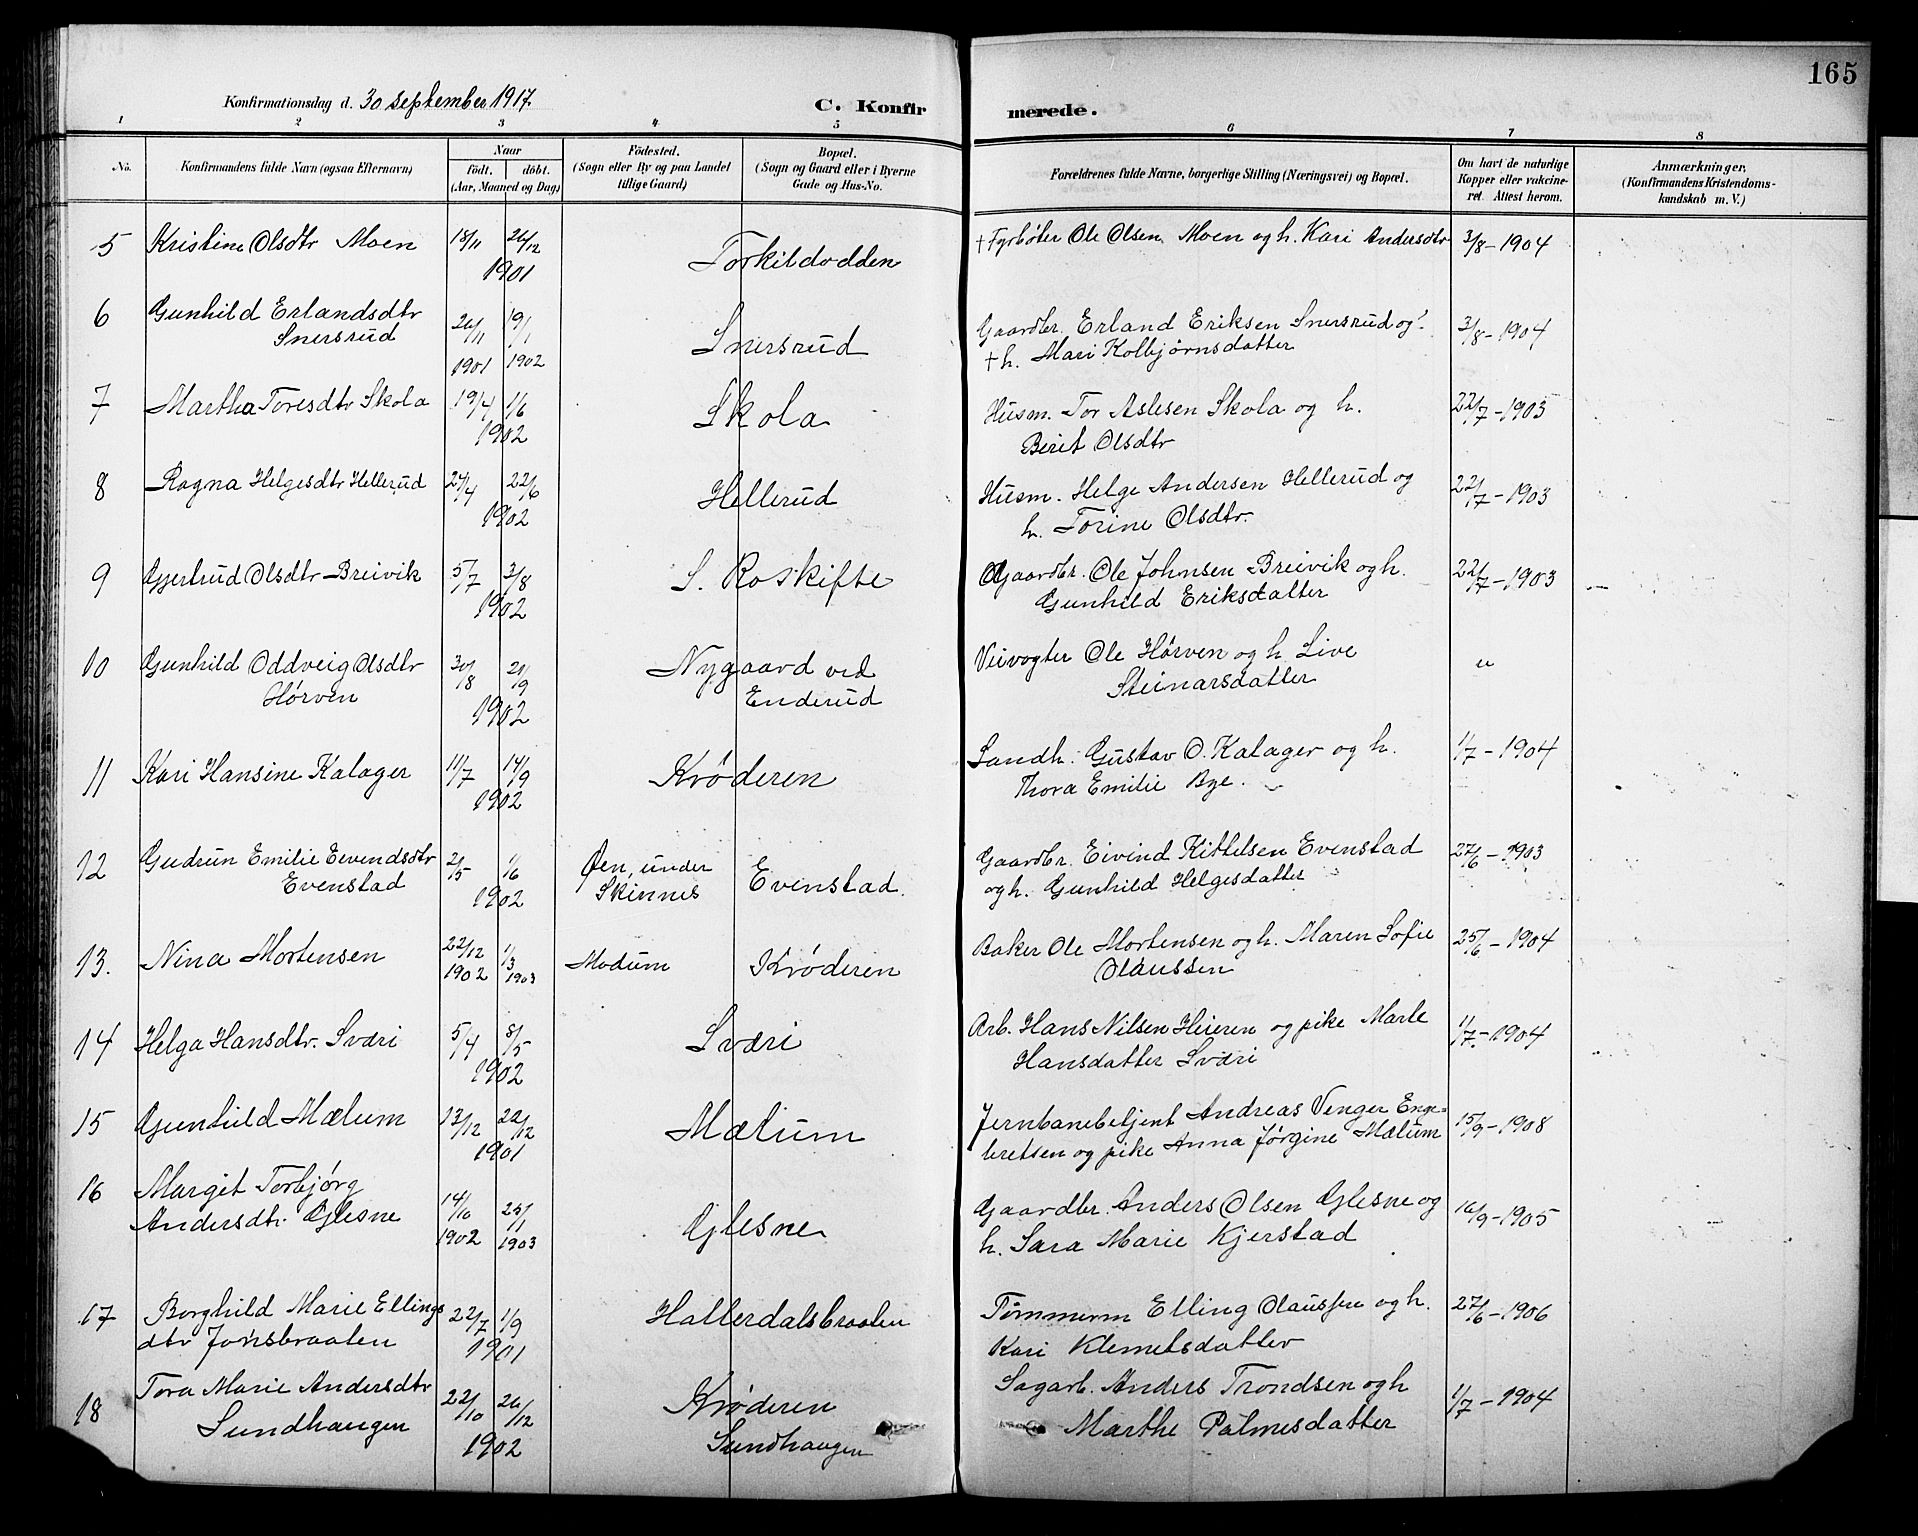 165
Konfirmationsdag d. 30 september 1917.
C. Konfirmerede.
1 2 3 4 5 6 7 8
No.
Konfirmandens fulde Navn (ogsaa Efternavn)
Naar
födt. döbt.
(Aar, Maaned og Dag)
Födested.
(Sogn eller By og paa Landet
tillige Gaard)
Bopæl.
(Sogn og Gaard eller i Byerne
Gade og Hus-No.
Forældrenes fulde Navne, borgerlige Stilling (Næringsvei) og Bopæl.
Om havt de naturlige
Kopper eller vakcine-
ret. Attest herom.
Anmærkninger.
(Konfirmandens Kristendoms-
kundskab m. V.)
5 Kristine Olsdtr Moen 18/11 26/12 1901 Torkildodden † Fyrbøter Ole Olsen Moen og h. Kari Andersdtr 3/8-1904
6 Gunhild Erlandsdtr
Snersrud 26/11 1901 19/1 1902 Snersrud Gaardbr. Erland Eriksen Snersrud og
† h. Mari Kolbjørnsdatter 3/8-1904
7 Martha Toresdtr Skola 19/4 1/6 1902 Skola Husm. Tor Aslesen Skola og h.
Berit Olsdtr 22/7-1903
8 Ragna Helgesdtr Hellerud 27/4 22/6 1902 Hellerud Husm. Helge Andersen Hellerud og
h. Torine Olsdtr. 22/7-1903
9 Gjertrud Olsdtr Breivik 5/7 3/8 1902 S. Roskifte Gaardbr. Ole Johnsen Breivik og h.
Gunhild Eriksdatter 22/7-1903
10 Gunhild Oddveig Olsdtr
Hørven 30/8 21/9 1902 Nygaard ved
Enderud Veivogter Ole Hørven og h. Live
Steinarsdatter "
11 Kari Hansine Kalager 11/7 14/9 1902 Krøderen Landh. Gustav O. Kalager og h.
Thora Emilie Bye. 1/7-1904
12 Gudrun Emilie Eevendsdtr
Evenstad 2/5 1/6 1902 Øen, under
Skinnes Evenstad. Gaardbr. Eivind Kittelsen Evenstad
og h. Gunhild Helgesdatter 27/6-1903
13. Nina Mortensen 22/12 1902 1/3 1903 Modum Krøderen Baker Ole Mortensen og h. Maren Sofie
Olaussen 25/6-1904
14 Helga Hansdtr. Sværi 5/4 8/5 1902 Sværi Arb. Hans Nilsen Heieren og pike Marte
Hansdatter Sværi 1/7-1904
15 Gunhild Mælum 13/12 22/12 1901 Mælum Jernbanebetjent Andreas Venger Enge-
bretsen og pike Anna Jørgine Mælum 15/9-1908
16 Margit Torbjørg
Andersdtr. Glesne 14/10 1902 25/1 1903 Glesne Gaardbr. Anders Olsen Glesne og
h. Sara Marie Kjerstad 16/9-1905
17 Borghild Marie Ellings
dtr Jonsbraaten 22/7 1/9 1901 Hallerdalsbraaten Tømmerm Elling Olaussen og h.
Kari Klemetsdatter 27/6-1906
18 Tora Marie Andersdtr
Sundhaugen 22/10 26/12 1902 Krøderen
Sundhaugen Sagarb. Anders Trondsen og h
Marthe Palmesdatter 1/7-1904